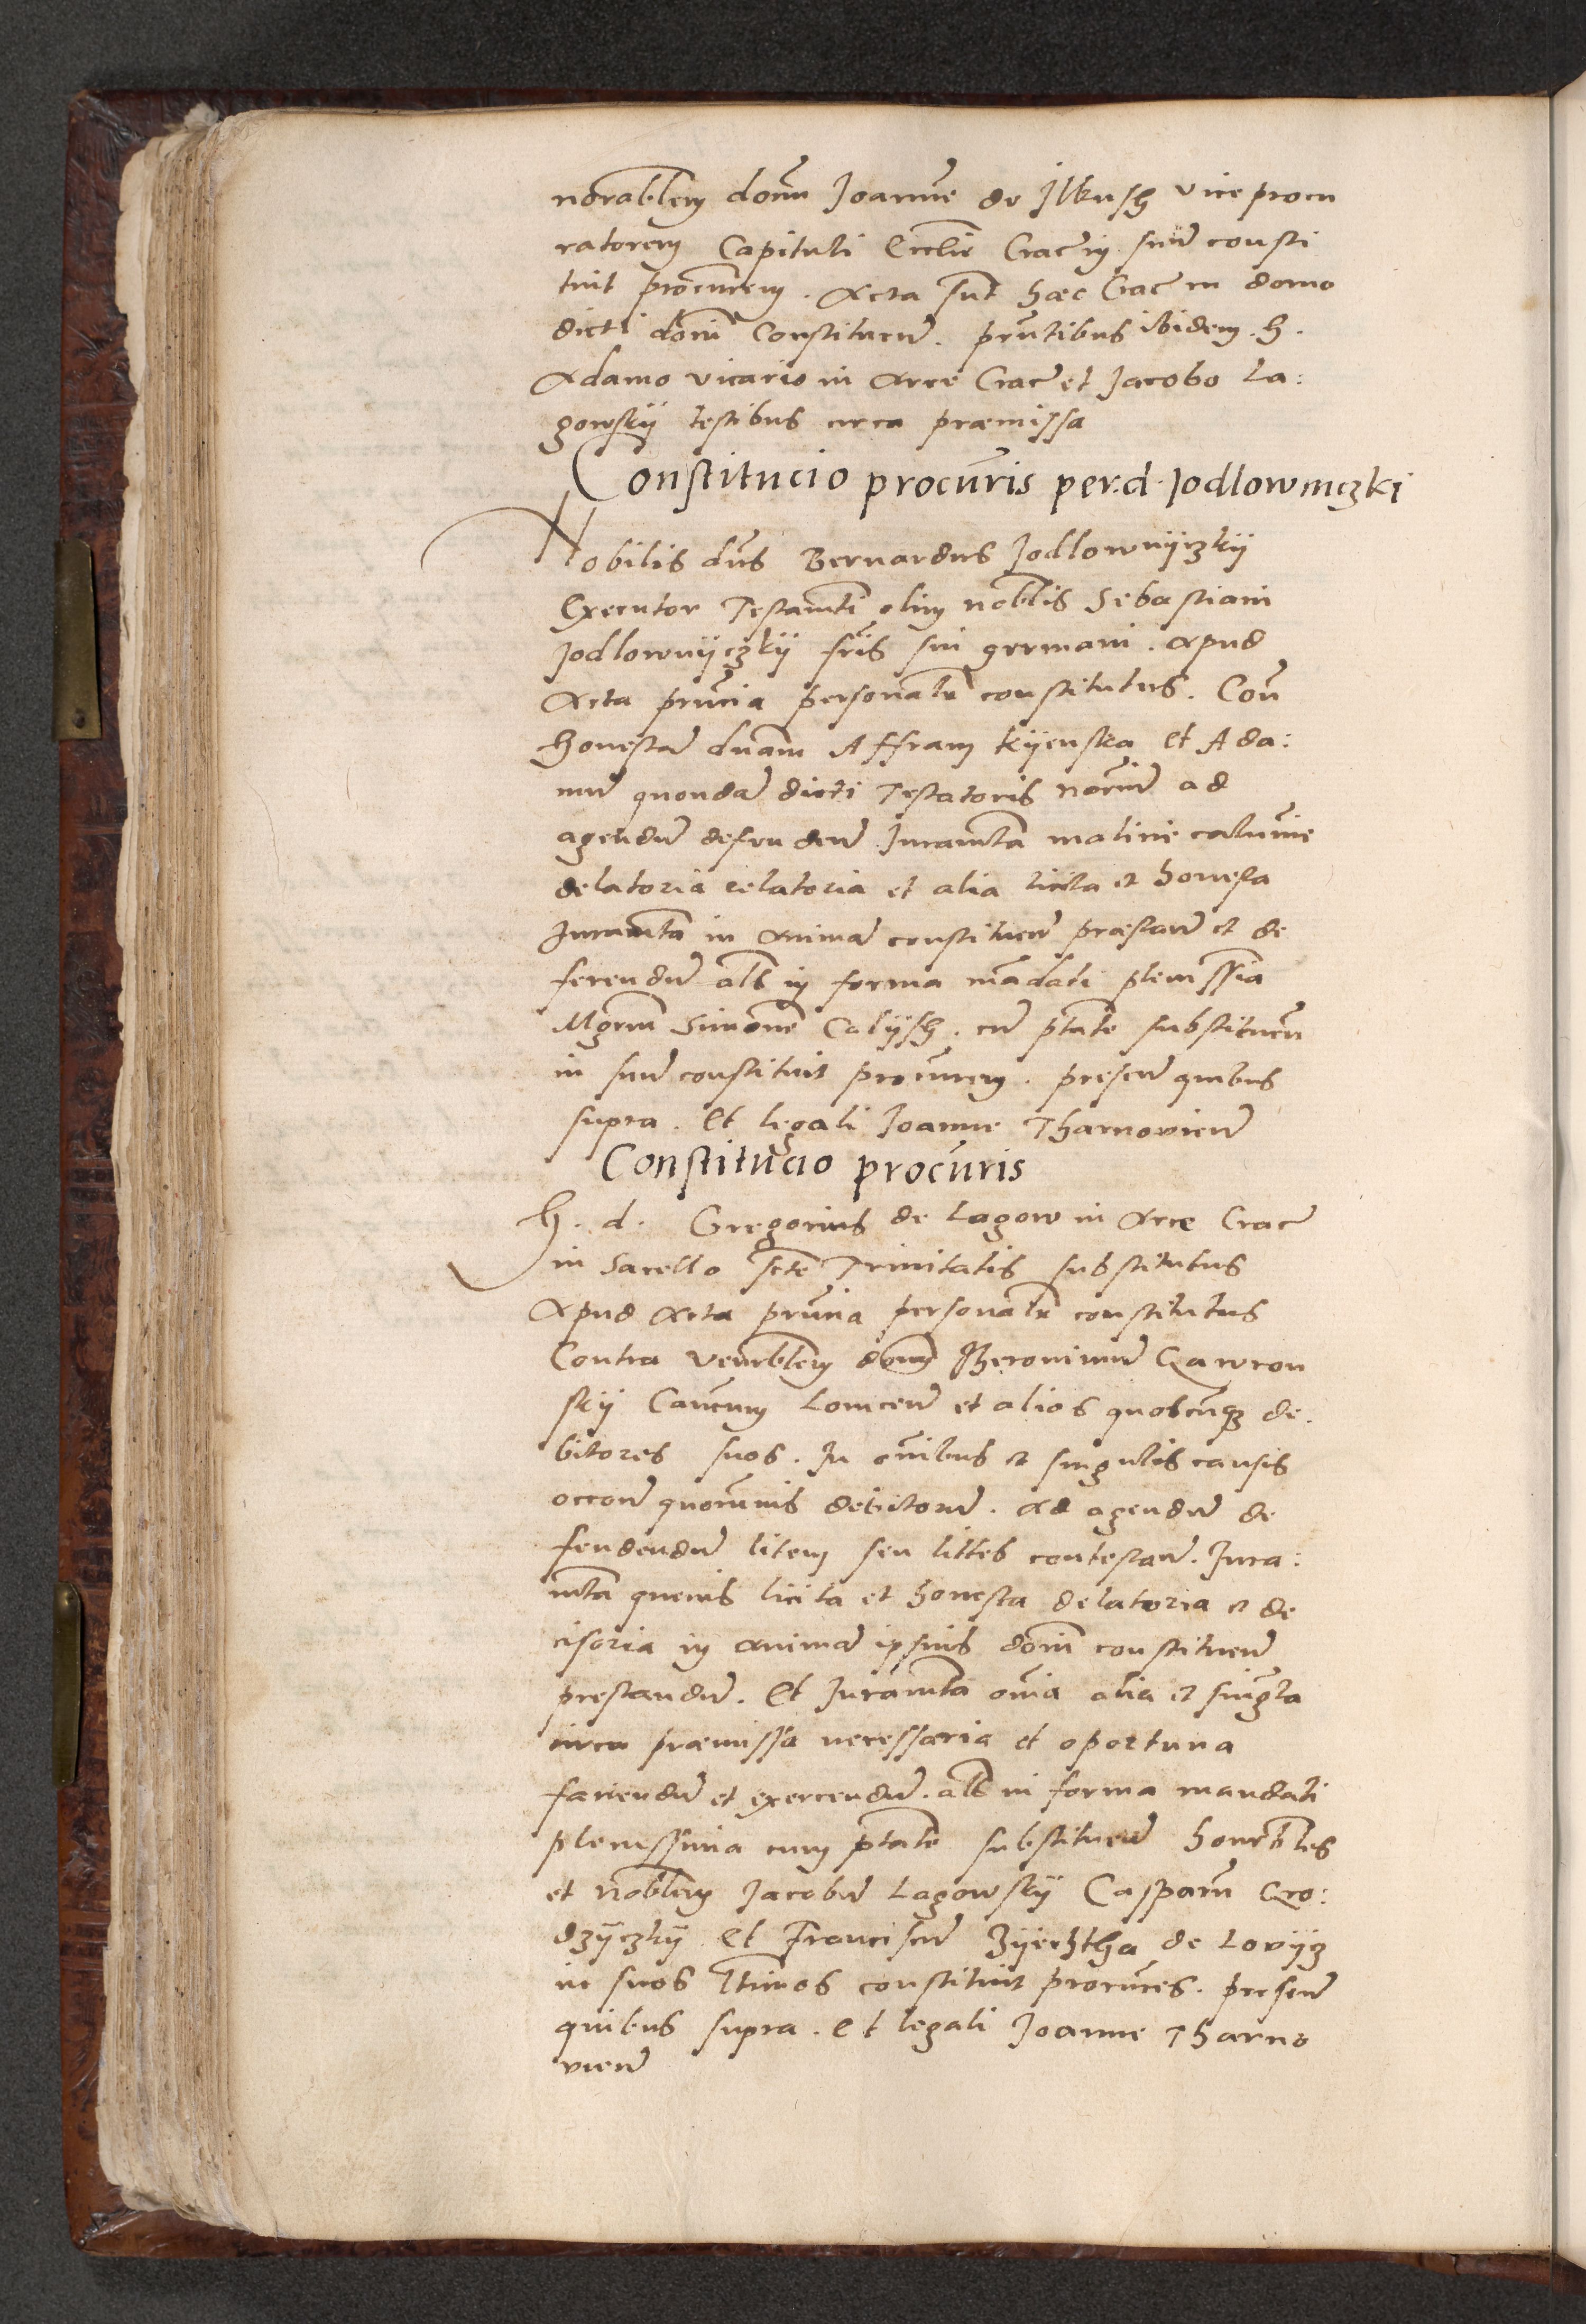 norablem domu Joanne de Jlkush vice procu
ratorem Capituli Ecclie Crac in suu consti
tuit procurem. Acta sunt haec Crac in domo
dicti domi Constituen. pntibus ibidem. h.
Adamo vicario in Arce Crac et Jacobo La:
gowsky testibus circa praemissa
Constitucio procuris per.d. Jodlowniczki
Nobilis dns Bernardus Jodlownyczky
Executor Testamti olim noblis Sebastiani
Jodlownyczky fris sui germani. Apud
Acta pnncia personalr constitutus. Con
honesta dnam Affram Kyenska et Ada:
mu quonda dicti Testatoris
agendu defendenu Juramta malicie calumie
delatoria relatoria et alia licita et honesta
Juramta in anima constituen praestan et de
ferendu als in forma madati plenissia
Mgrum Simone Calysh. cu ptate substituen
in suu constituit procurem. presen quibus
supra. Et legali Joanne Tharnovien
Constitucio procuris
h. d. Gregorius de Lagow in Arce Crac
in Sacello scte Trinitatis substitutus
Apud Acta pnncia personalr constitutus
Contra venerblem domu Hieronimu Gawron
sky Canonicum Lovicen et alios quoscunq de.
bitores suos. In omibus et singulis causis
occone quorumvis debitoru. Ad agendu de
fendendu litem seu littes contestan. Jura:
mta quevis licita et honesta delatoria et de
cisoria in anima ipsius domi constituen
prestandu. Et Juramta omia alia et singla
circa praemissa necessaria et oportuna
faciendu et exercendu. als in forma mandati
plenissima cum ptate substituen honorbles
et noblem Jacobu Lagowsky Casparu Gro:
dzyczky et Franciscu Zyechtha de Lovyz
in suos ltimos constituit procures. presen
quibus supra. et legali Joanne Tharno
vien